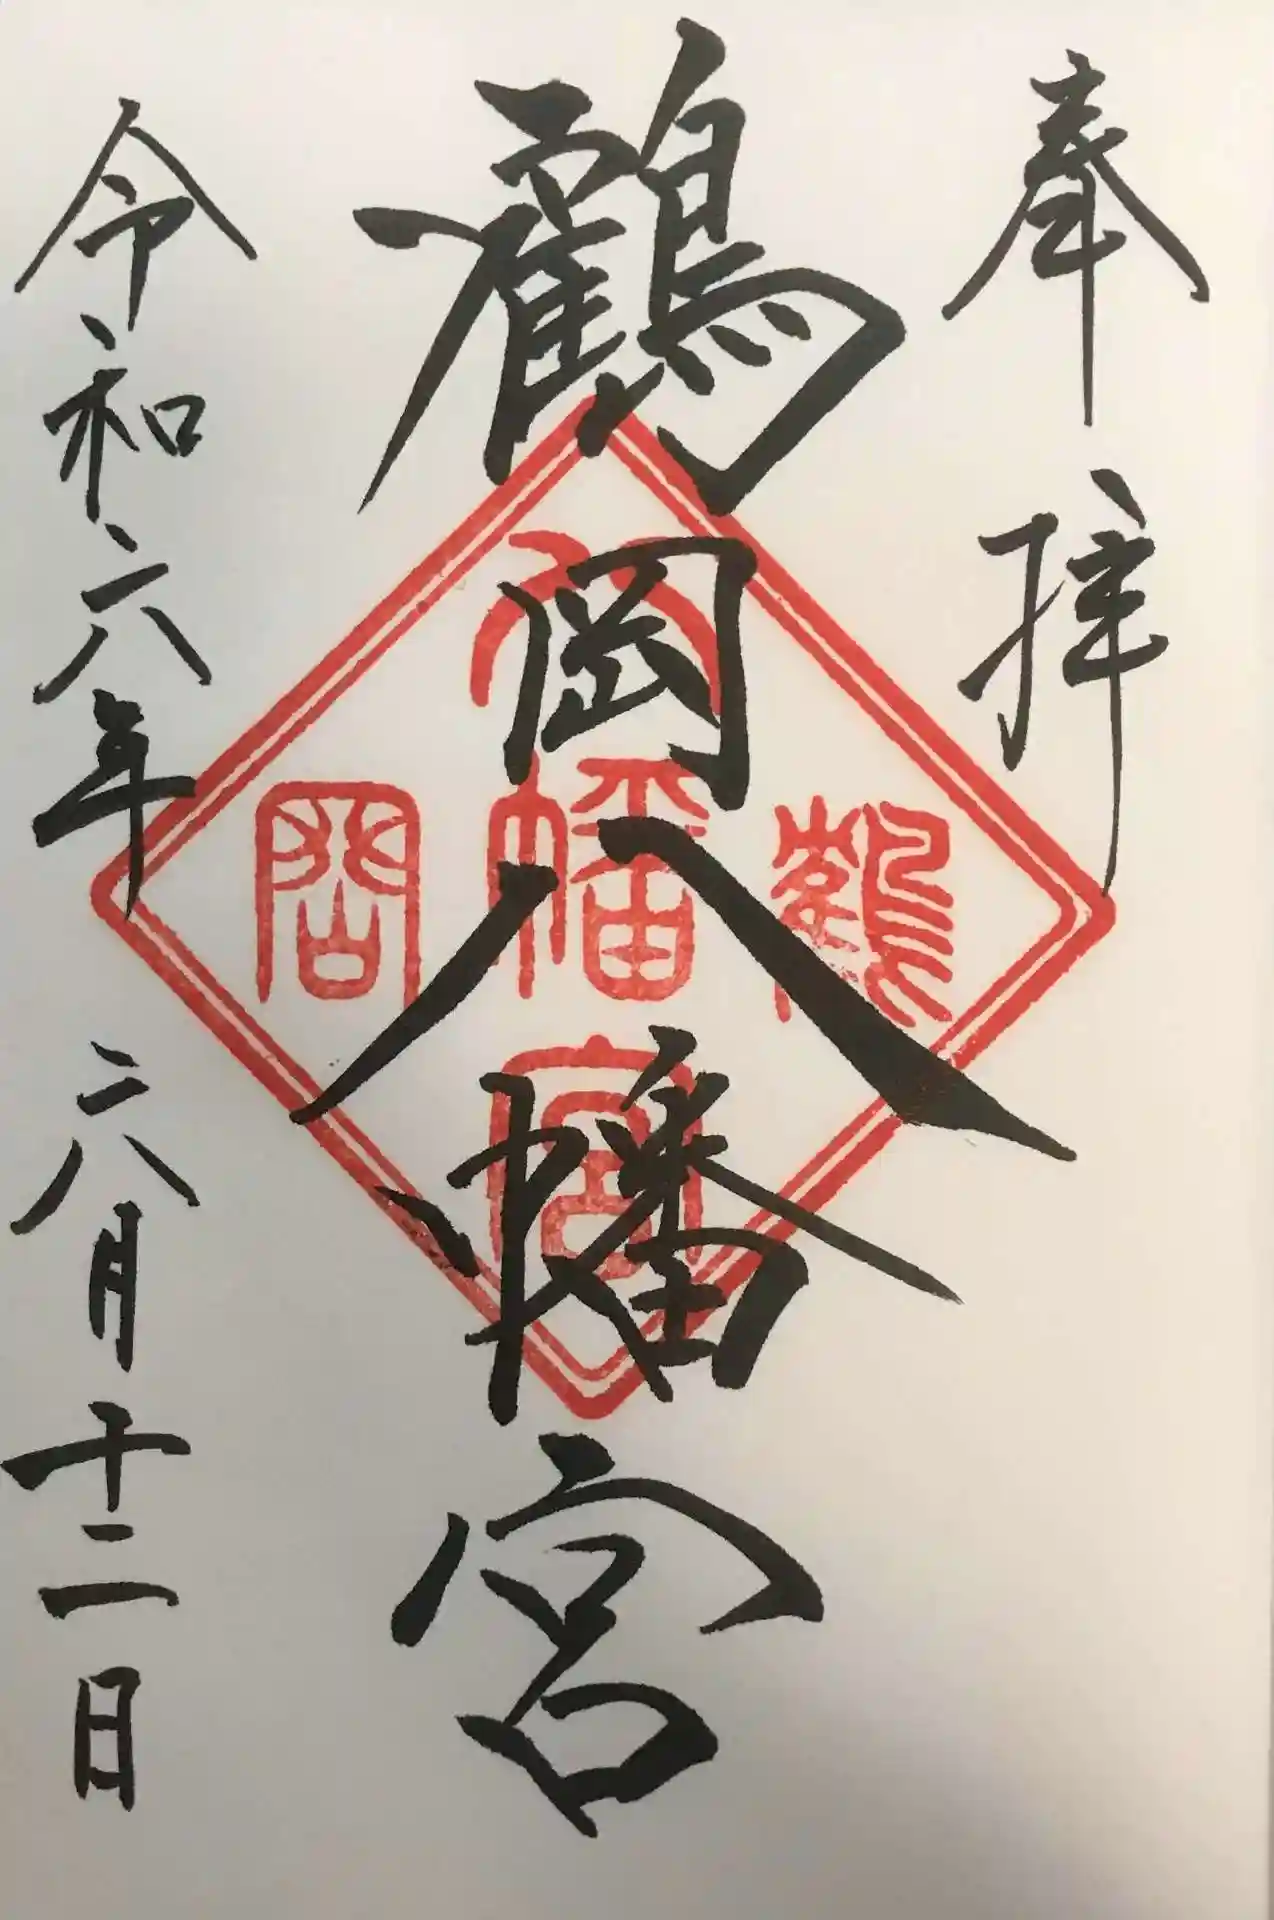 奉拝
鶴岡八幡宮
鶴岡八幡宮
令和六年六月十二日